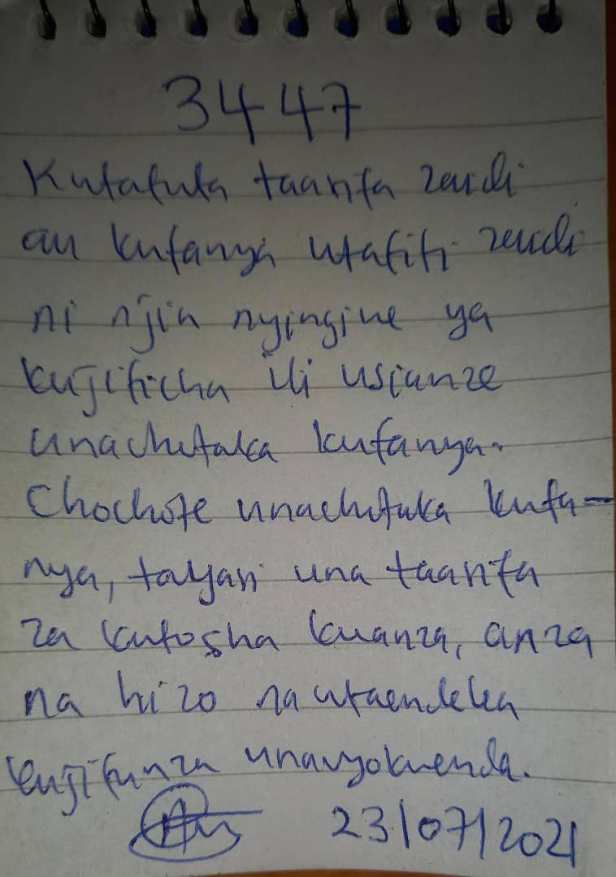 3447
Kutafuta taarifa zaidi
au kufanya utafiti zaidi
ni njia nyingine ya
kujificha ili usianze
unachotaka kufanya.
Chochote unachotaka kufa-
nya, tayari una taarifa
za kutosha kuanza, anza
na hizo na utaendelea
kujifunza unavyokwenda.
23/07/2021